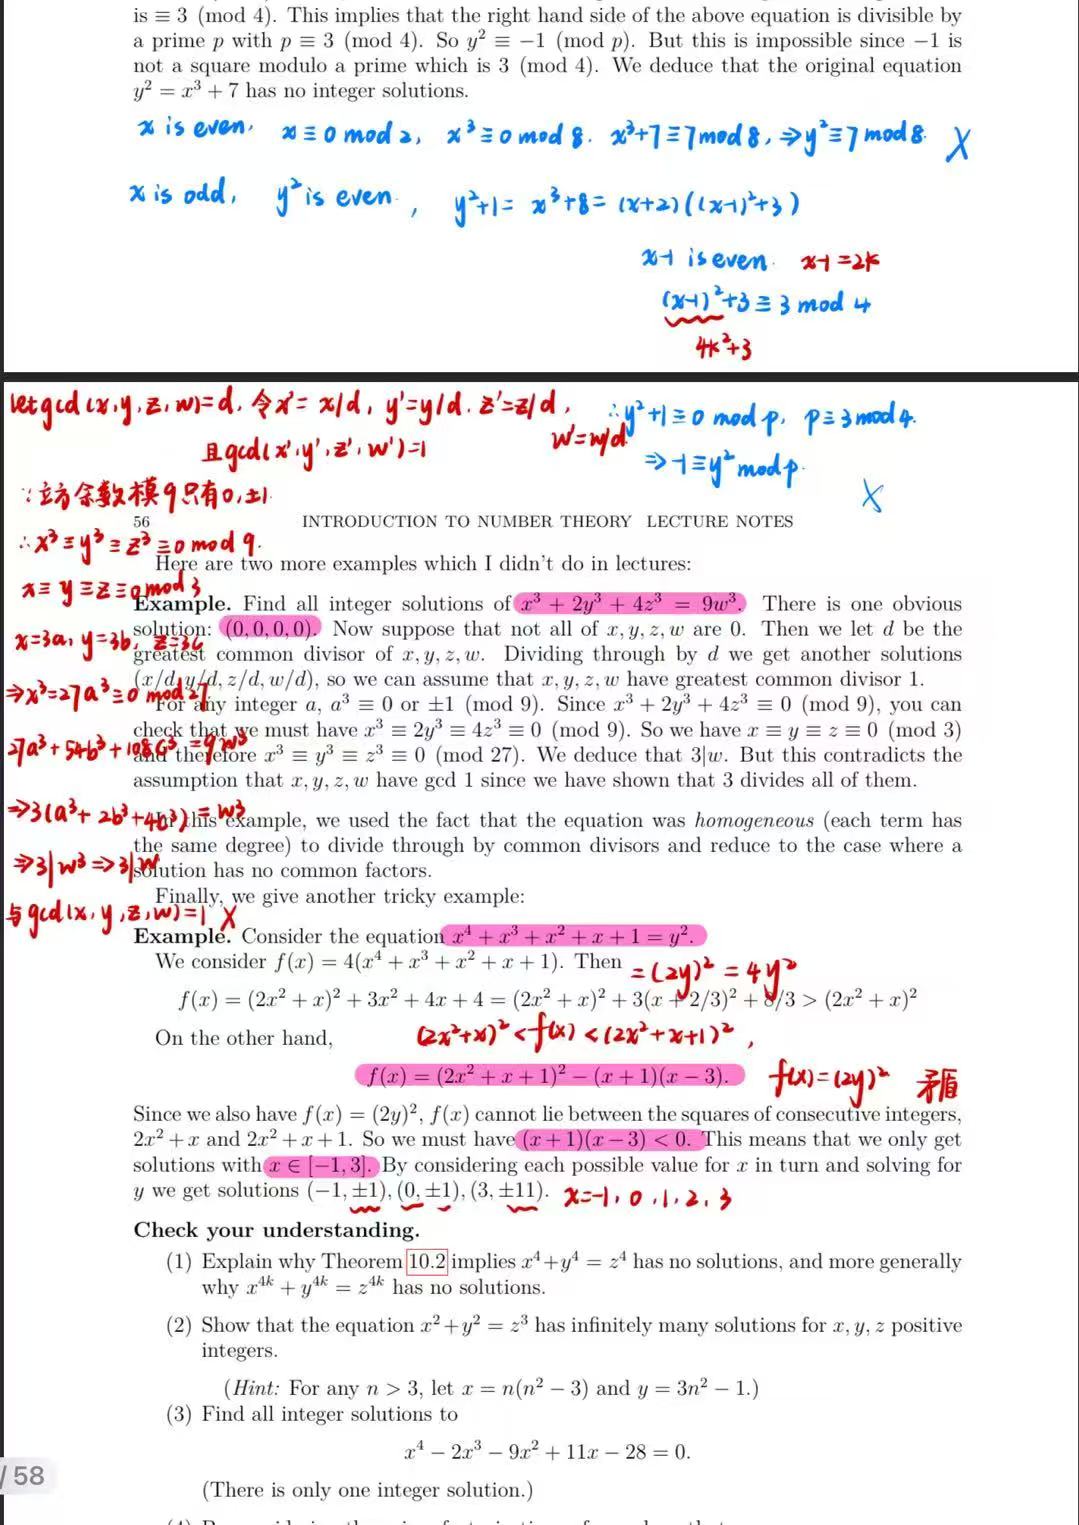 is ≡ 3 (mod 4). This implies that the right hand side of the above equation is divisible by
a prime p with p ≡ 3 (mod 4). So y² ≡ −1 (mod p). But this is impossible since −1 is
not a square modulo a prime which is 3 (mod 4). We deduce that the original equation
y² = x³ + 7 has no integer solutions.
x is even. x ≡ 0 mod 2, x³ ≡ 0 mod 8. x³+7 ≡ 7 mod 8, ⇒ y² ≡ 7 mod 8. X
x is odd, y² is even, y²+1 = x³+8 = (x+2)((x-1)²+3)
x-1 is even. x-1 = 2k
(x-1)²+3 ≡ 3 mod 4
4k²+3
let gcd(x,y,z,w)=d. 令x'= x/d, y'=y/d. z'=z/d,
w'=w/d
且gcd(x',y',z',w')=1
∴y²+1 ≡ 0 mod p, p ≡ 3 mod 4.
⇒ -1 ≡ y² mod p.
X
∵立方余数模9只有0,±1
56 INTRODUCTION TO NUMBER THEORY LECTURE NOTES
∴x³ ≡ y³ ≡ z³ ≡ 0 mod 9.
Here are two more examples which I didn't do in lectures:
x ≡ y ≡ z ≡ 0 mod 3
Example. Find all integer solutions of x³ + 2y³ + 4z³ = 9w³. There is one obvious
solution: (0, 0, 0, 0). Now suppose that not all of x, y, z, w are 0. Then we let d be the
x=3a, y=3b, z=3c
greatest common divisor of x, y, z, w. Dividing through by d we get another solutions
(x/d, y/d, z/d, w/d), so we can assume that x, y, z, w have greatest common divisor 1.
⇒x³=27a³ ≡ 0 mod 27
For any integer a, a³ ≡ 0 or ±1 (mod 9). Since x³ + 2y³ + 4z³ ≡ 0 (mod 9), you can
check that we must have x³ ≡ 2y³ ≡ 4z³ ≡ 0 (mod 9). So we have x ≡ y ≡ z ≡ 0 (mod 3)
27a³ + 54b³ + 108c³ = 9w³
and therefore x³ ≡ y³ ≡ z³ ≡ 0 (mod 27). We deduce that 3|w. But this contradicts the
assumption that x, y, z, w have gcd 1 since we have shown that 3 divides all of them.
⇒3(a³+ 2b³+4c³) = w³
In this example, we used the fact that the equation was homogeneous (each term has
the same degree) to divide through by common divisors and reduce to the case where a
⇒3|w³ ⇒3|w
solution has no common factors.
Finally, we give another tricky example:
与gcd(x,y,z,w)=1 X
Example. Consider the equation x⁴ + x³ + x² + x + 1 = y².
We consider f(x) = 4(x⁴ + x³ + x² + x + 1). Then
= (2y)² = 4y²
f(x) = (2x² + x)² + 3x² + 4x + 4 = (2x² + x)² + 3(x + 2/3)² + 8/3 > (2x² + x)²
On the other hand,
(2x²+x)² < f(x) < (2x²+x+1)²,
f(x) = (2x² + x + 1)² − (x + 1)(x − 3).
f(x) = (2y)² 矛盾
Since we also have f(x) = (2y)², f(x) cannot lie between the squares of consecutive integers,
2x² + x and 2x² + x + 1. So we must have (x + 1)(x − 3) < 0. This means that we only get
solutions with x ∈ [−1, 3]. By considering each possible value for x in turn and solving for
y we get solutions (−1, ±1), (0, ±1), (3, ±11). x=-1, 0, 1, 2, 3
Check your understanding.
(1) Explain why Theorem 10.2 implies x⁴ + y⁴ = z⁴ has no solutions, and more generally
why x⁴ᵏ + y⁴ᵏ = z⁴ᵏ has no solutions.
(2) Show that the equation x² + y² = z³ has infinitely many solutions for x, y, z positive
integers.
(Hint: For any n > 3, let x = n(n² − 3) and y = 3n² − 1.)
(3) Find all integer solutions to
x⁴ − 2x³ − 9x² + 11x − 28 = 0.
/ 58
(There is only one integer solution.)